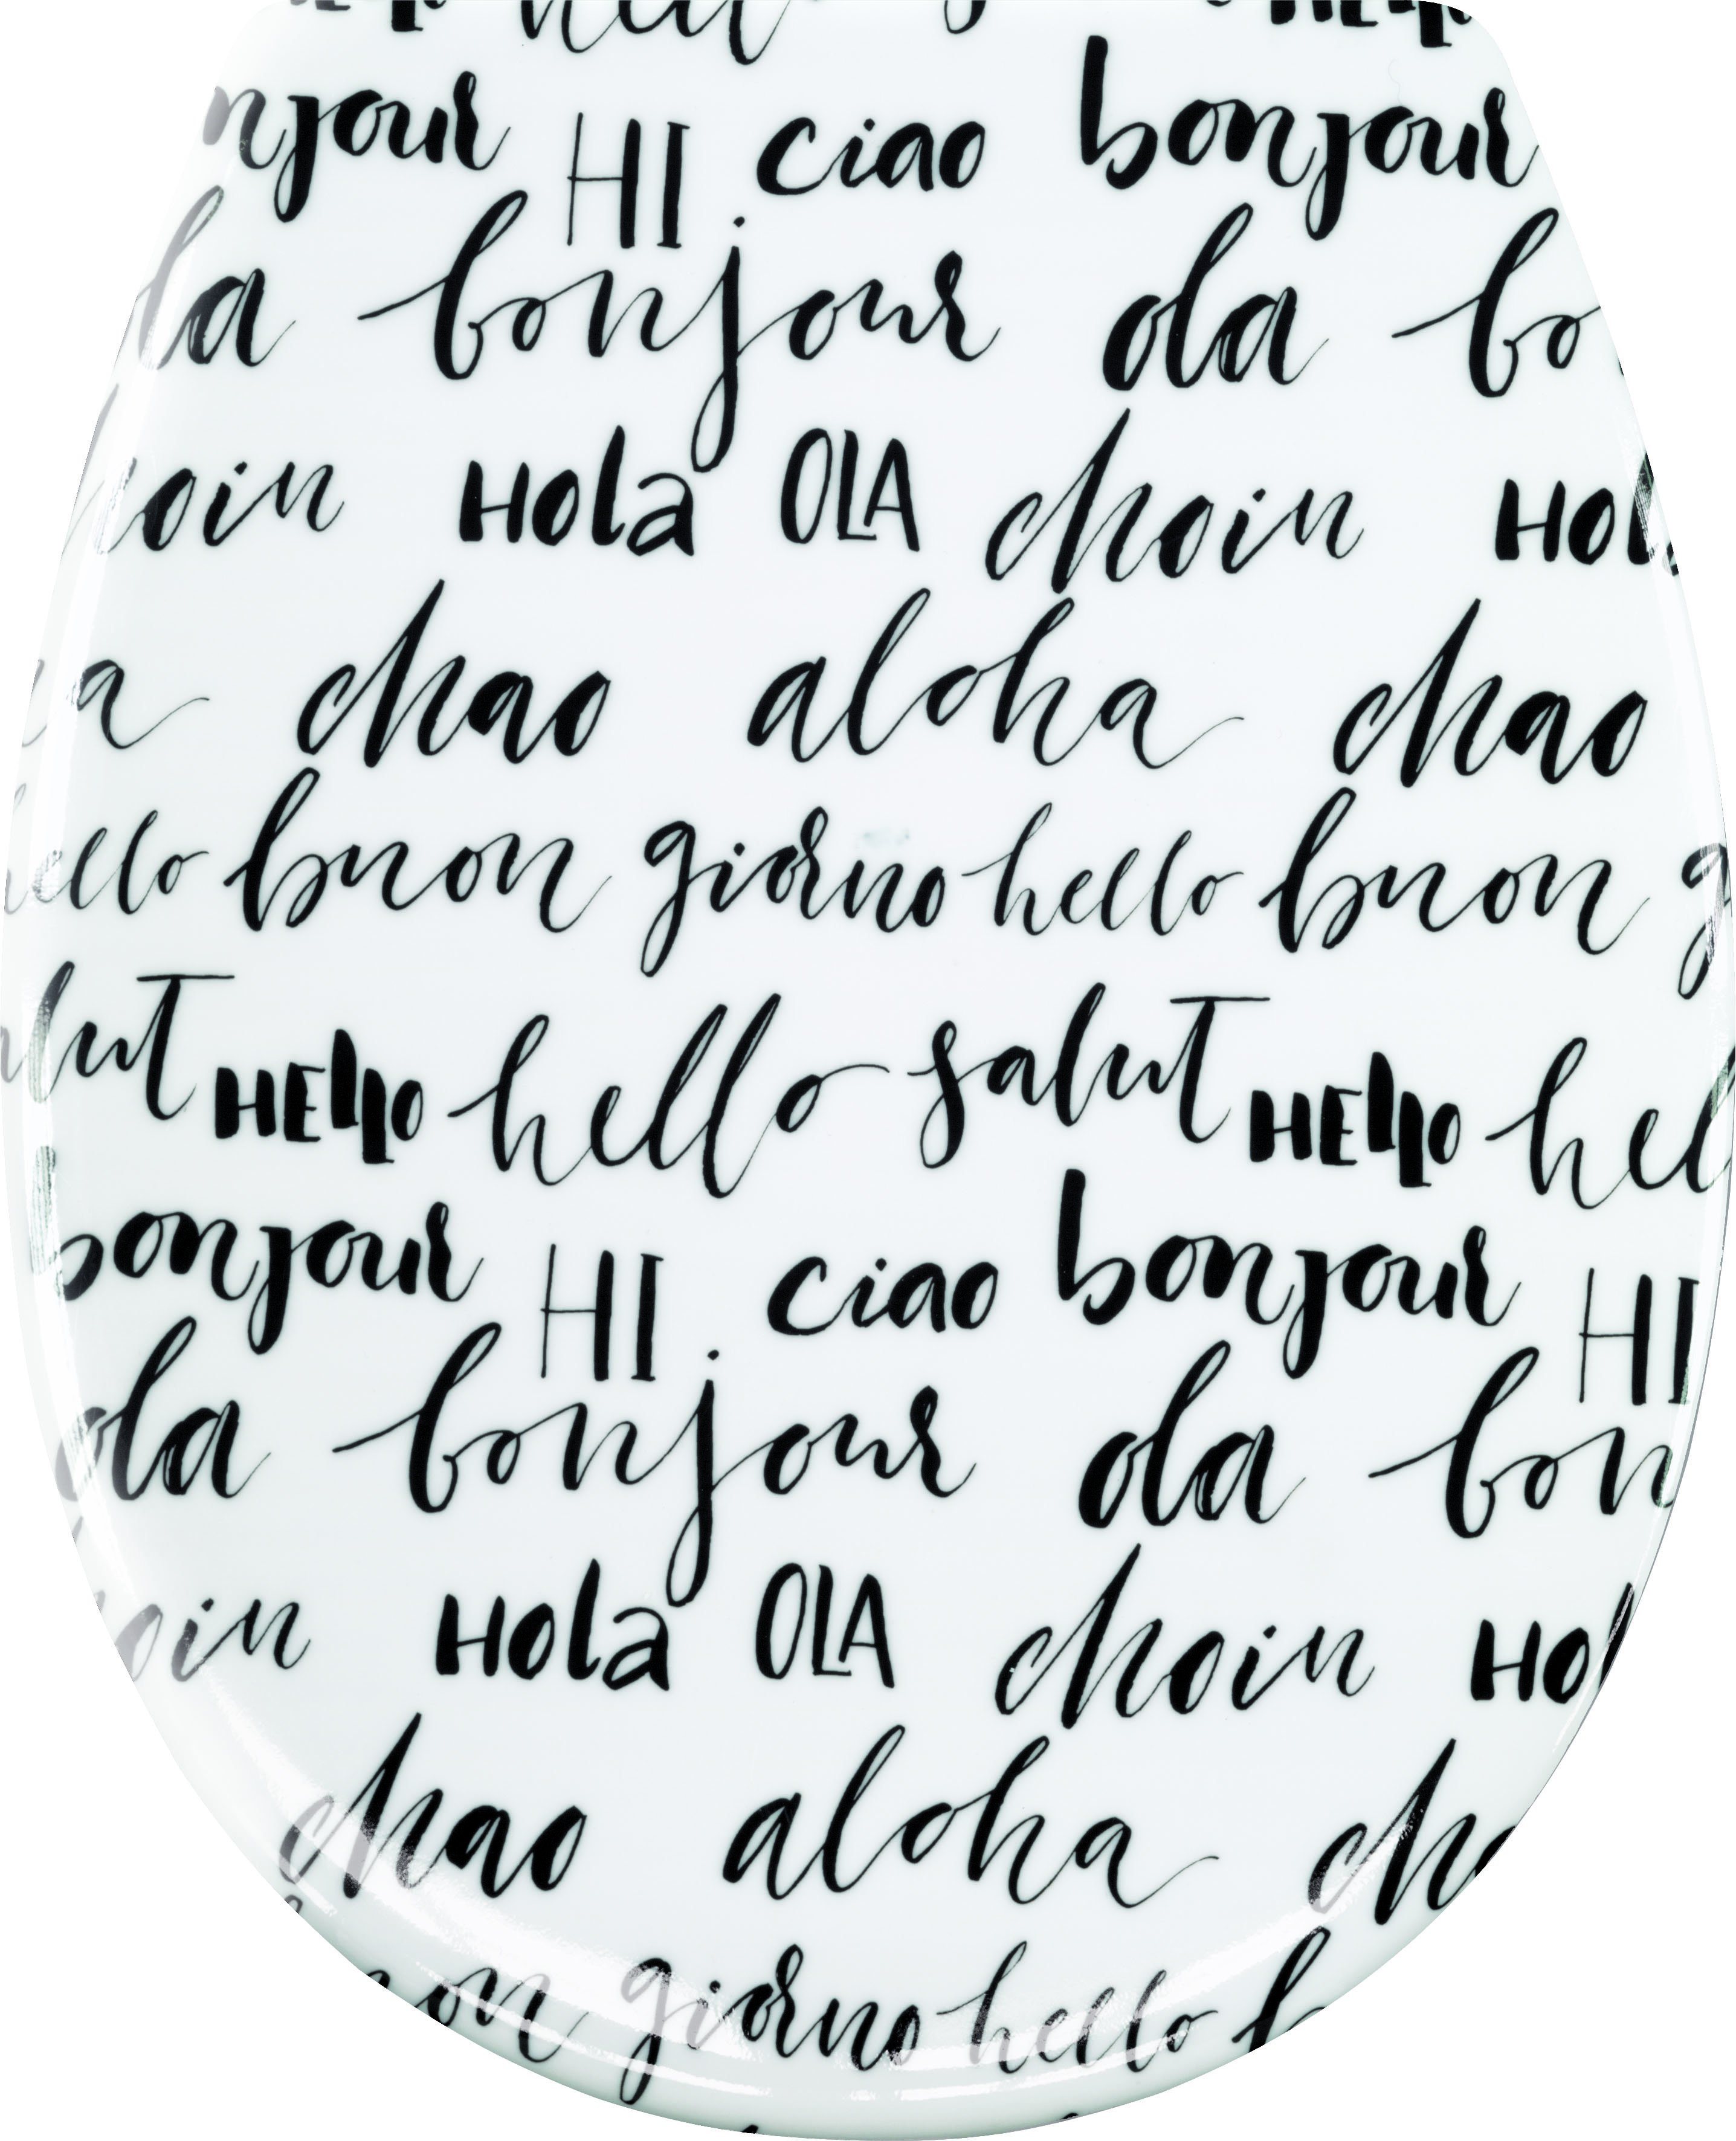 hello HEllo
njour HI ciao bonjour
la bonjour ola bo
oin Hola OLA choin Hol
a chao aloha chao
ello buon giorno hello buon g
lut HEllo hello salut HEllo hel
bonjour HI ciao bonjour HI
ola bonjour ola bon
oin Hola OLA choin Hol
chao aloha cha
on giorno hello b